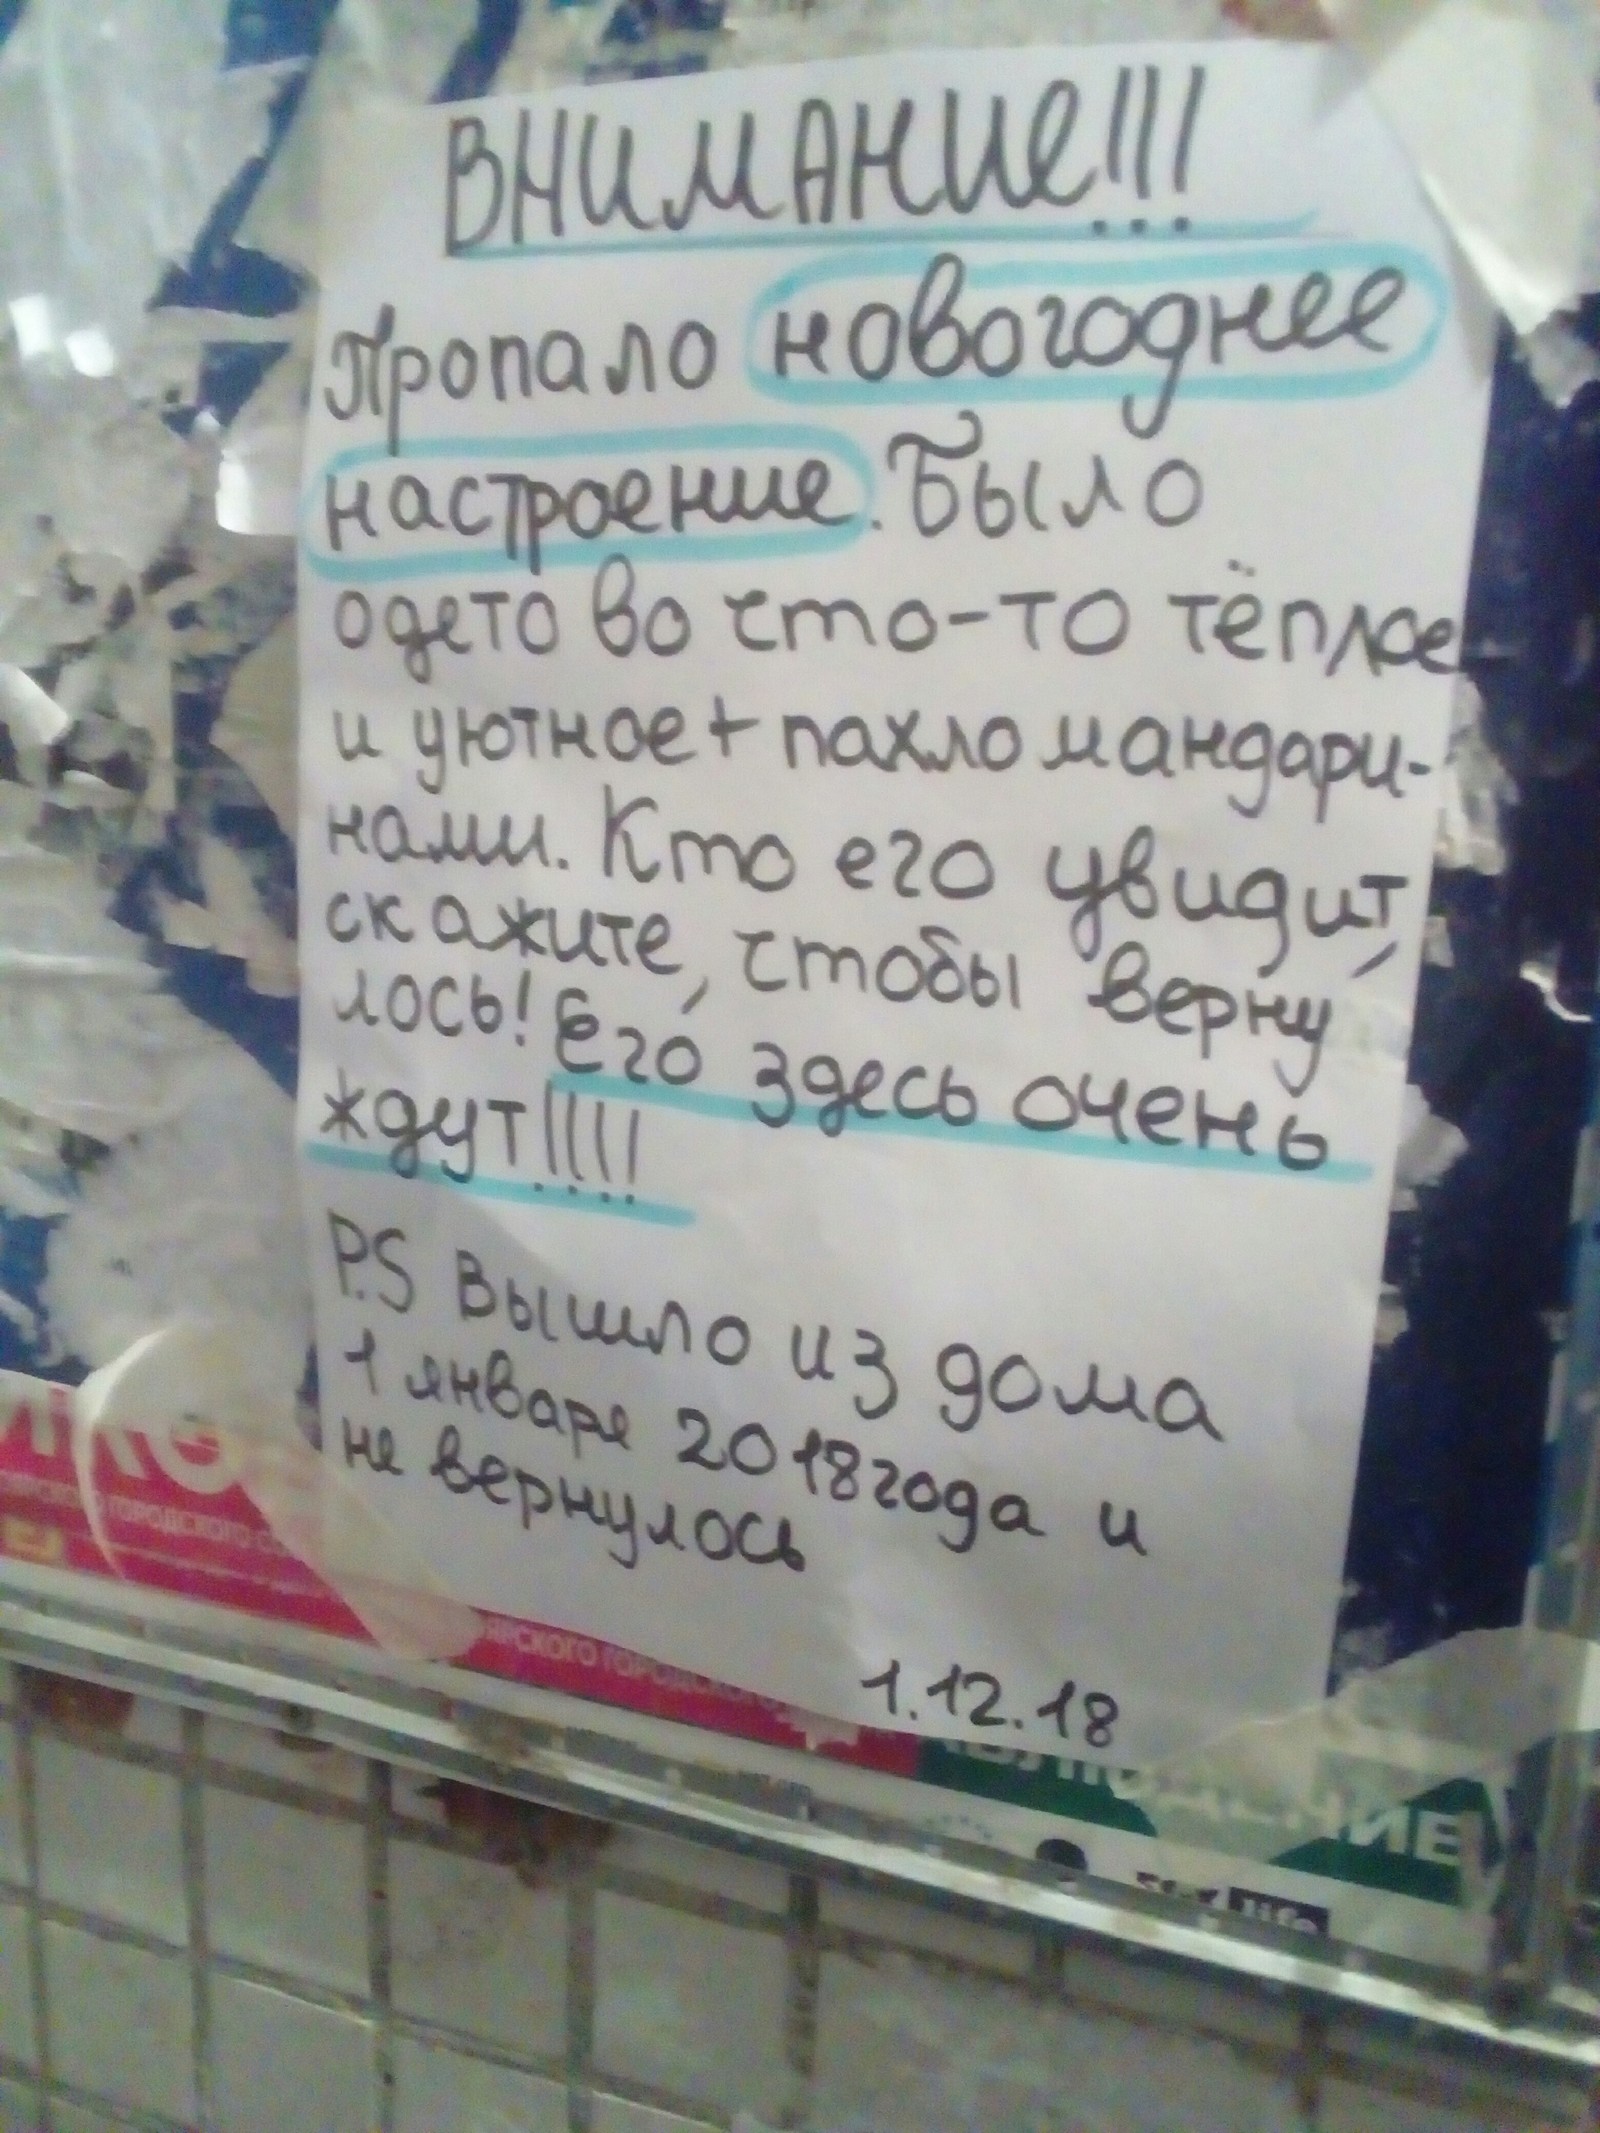 ВНИМАНИЕ!!!
Пропало новогоднее
настроение. Было
одето во что-то тёплое
и уютное + пахло мандари-
нами. Кто его увидит,
скажите, чтобы верну
лось! Его здесь очень
ждут!!!!
P.S Вышло из дома
1 январе 2018 года и
не вернулось
1.12.18
ГОРОДСКОГО
ЯРСКОГО ГОРОДСКОГО
life